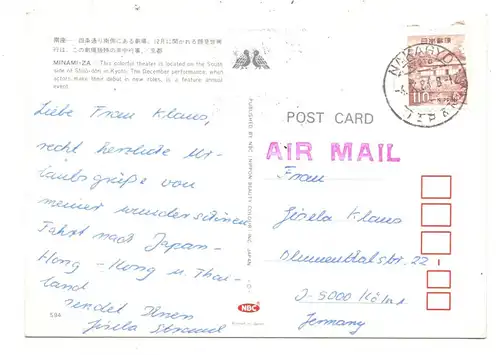 南座― 四条通り南側にある劇場。12月に開かれる顔見世興
行は、この劇場独特の年中行事。 京都
MINAMI-ZA This colorful theater is located on the South
side of Shijo-dori in Kyoto. The December performance, when
actors make their debut in new roles, is a feature annual
event.
Liebe Frau Klaus,
recht herzliche Ur-
laubsgrüße von
meiner wunderschönen
Fahrt nach Japan-
Hong-Kong u. Thai-
land
sendet Ihnen
Gisela
504
PUBLISHED BY NBC (NIPPON BEAUTY COLOUR) INC. JAPAN
NBC
Printed in Japan
POST CARD
AIR MAIL
日本郵便
110
NAKAGYO
Frau
Gisela Klaus
Blumenthalstr. 22
D-5000 Köln 1
Germany